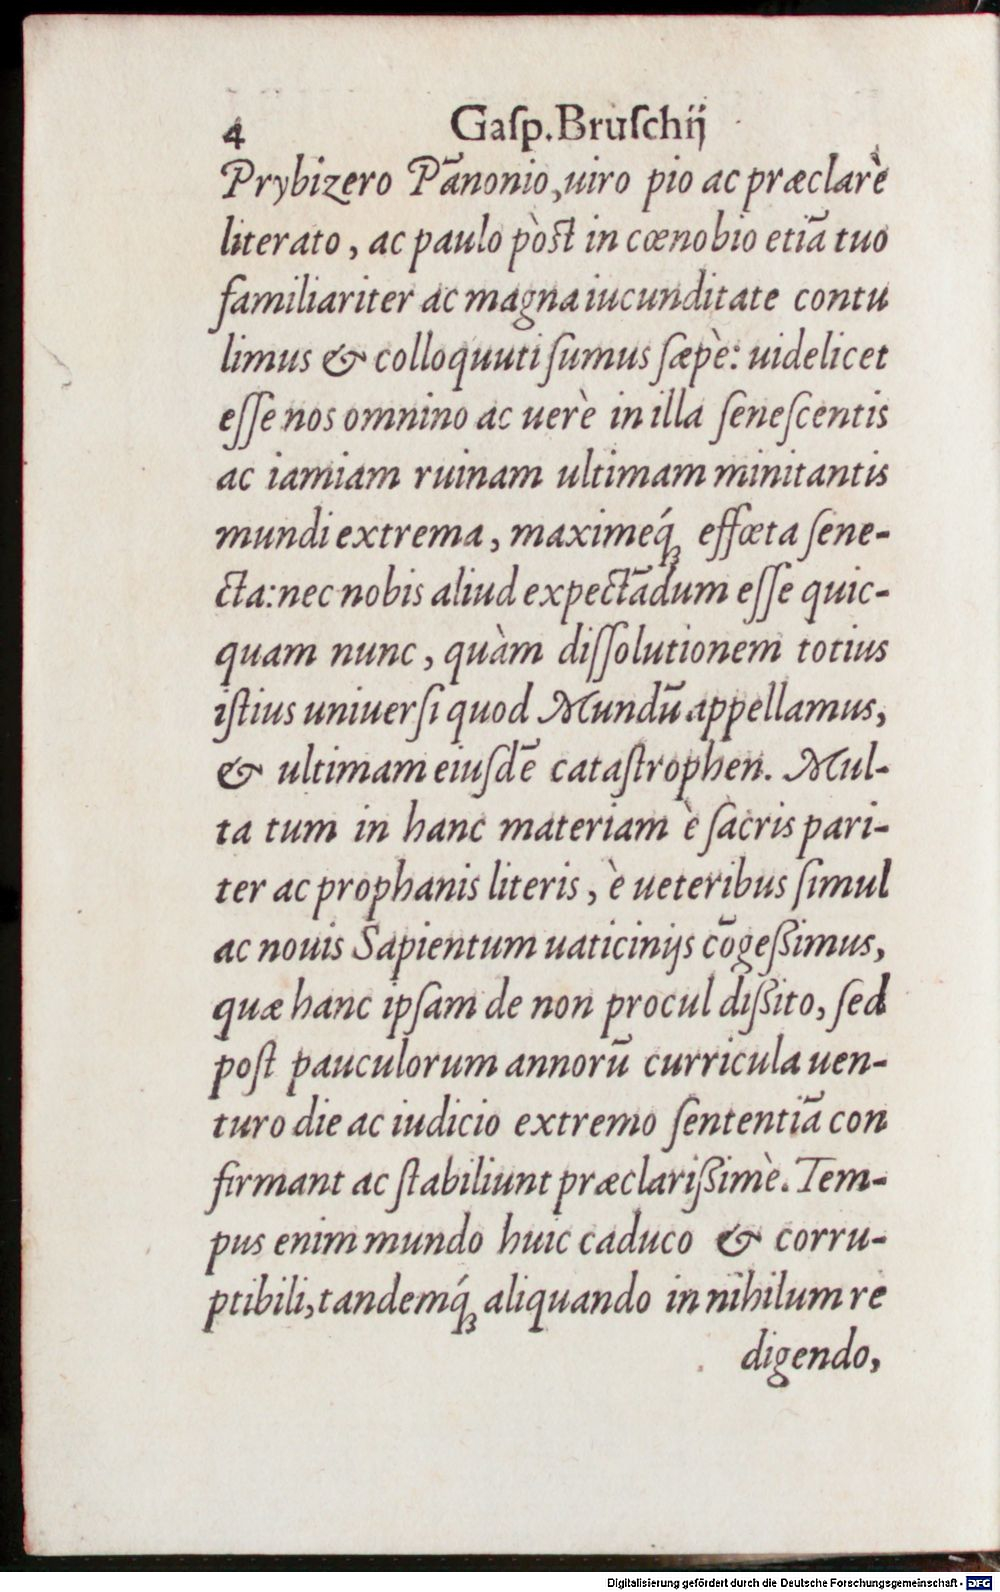 4 Gaſp. Bruſchij
Prybizero Pãnonio, uiro pio ac præclarè
literato, ac paulo pòst in cœnobio etiã tuo
familiariter ac magna iucunditate contu
limus & colloquuti ſumus ſæpè: uidelicet
eſſe nos omnino ac uerè in illa ſeneſcentis
ac iamiam ruinam ultimam minitantis
mundi extrema, maximeq́ꝫ effœta ſene-
cta: nec nobis aliud expectãdum eſſe quic-
quam nunc, quàm diſſolutionem totius
iſtius uniuerſi quod Mundũ appellamus,
& ultimam eiuſdẽ cataſtrophen. Mul-
ta tum in hanc materiam è ſacris pari-
ter ac prophanis literis, è ueteribus ſimul
ac nouis Sapientum uaticinijs cõgeßimus,
quæ hanc ipſam de non procul dißito, ſed
poſt pauculorum annorũ curricula uen-
turo die ac iudicio extremo ſententiã con
firmant ac ſtabiliunt præclarißimè. Tem-
pus enim mundo huic caduco & corru-
ptibili, tandemq́ꝫ aliquando in nihilum re
digendo,
Digitalisierung gefördert durch die Deutsche Forschungsgemeinschaft - DFG